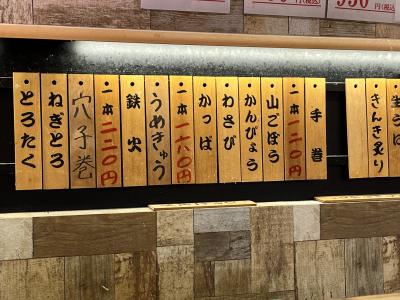 円(税込)
550円(税込)
手巻
一本二二〇円
山ごぼう
かんぴょう
わさび
かっぱ
一本一六〇円
うめきゅう
鉄火
一本二二〇円
穴子巻
ねぎとろ
とろたく
生うに
きんき炙り